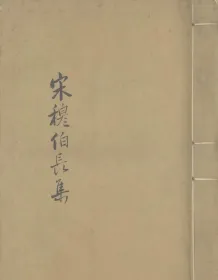 宋穆伯長集